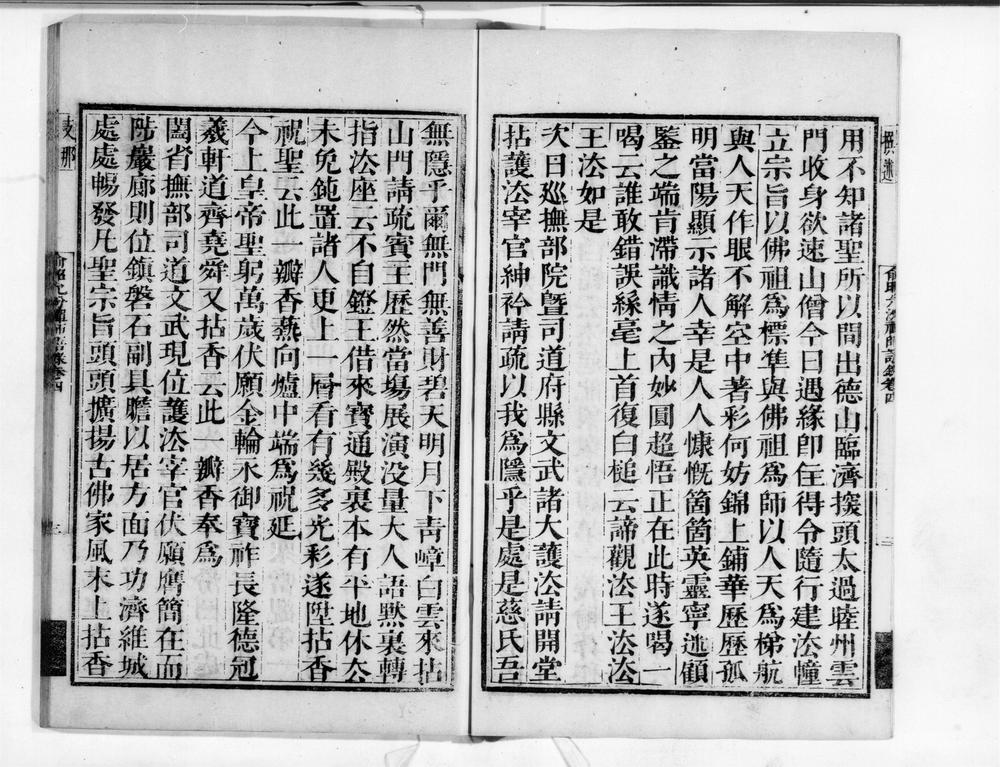 用不知諸聖所以間出德山臨濟捩頭太過睦州雲
門收身欲速山僧今日遇緣卽住得令隨行建法幢
立宗旨以佛祖爲標準與佛祖爲師以人天爲梯航
與人天作眼不解空中著彩何妨錦上鋪華歷歷孤
明當陽顯示諸人幸是人人慷慨箇箇英靈寧逃顧
鑒之端肯滯識情之內妙圓超悟正在此時遂喝一
喝云誰敢錯誤絲毫上首復白槌云諦觀法王法法
王法如是
次日巡撫部院曁司道府縣文武諸大護法請開堂
拈護法宰官紳衿請疏以我爲隱乎是處是慈氏吾
無隱乎爾無門無善財碧天明月下靑嶂白雲來拈
山門請疏賓主歷然當場展演没量大人語默裏轉
指法座云不自鐙王借來寶通殿裏本有平地休公
未免鈍置諸人更上一層看有幾多光彩遂陞拈香
祝聖云此一瓣香爇向爐中端爲祝延
今上皇帝聖躬萬歲伏願金輪永御寶祚長隆德冠
羲軒道齊堯舜又拈香云此一瓣香奉爲
闔省撫部司道文武現位護法宰官伏願膺簡在而
陟巖廊則位鎭磐石副具瞻以居方面乃功濟維城
處處暢發凡聖宗旨頭頭擴揚古佛家風末
拈香
支那
撰述